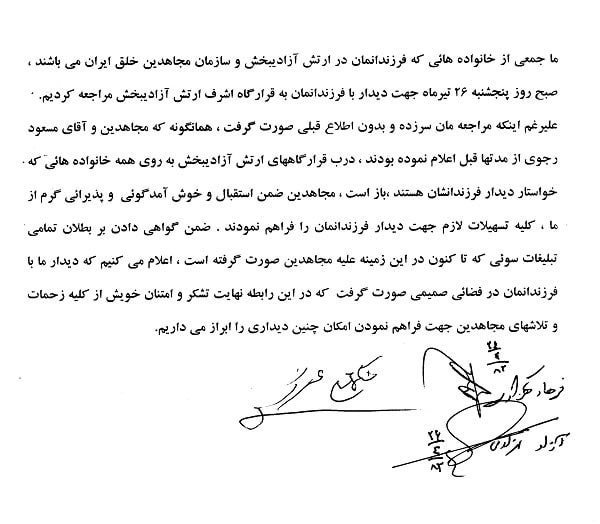 ما جمعی از خانواده هائی که فرزندانمان در ارتش آزادیبخش و سازمان مجاهدین خلق ایران می باشند ،
صبح روز پنجشنبه ۲۶ تیرماه جهت دیدار با فرزندانمان به قرارگاه اشرف ارتش آزادیبخش مراجعه کردیم.
علیرغم اینکه مراجعه مان سرزده و بدون اطلاع قبلی صورت گرفت ، همانگونه که مجاهدین و آقای مسعود
رجوی از مدتها قبل اعلام نموده بودند ، درب قرارگاههای ارتش آزادیبخش به روی همه خانواده هائی که
خواستار دیدار فرزندانشان هستند ،باز است ، مجاهدین ضمن استقبال و خوش آمدگوئی و پذیرائی گرم از
ما ، کلیه تسهیلات لازم جهت دیدار فرزندانمان را فراهم نمودند . ضمن گواهی دادن بر بطلان تمامی
تبلیغات سوئی که تا کنون در این زمینه علیه مجاهدین صورت گرفته است ، اعلام می کنیم که دیدار ما با
فرزندانمان در فضائی صمیمی صورت گرفت که در این رابطه نهایت تشکر و امتنان خویش از کلیه زحمات
و تلاشهای مجاهدین جهت فراهم نمودن امکان چنین دیداری را ابراز می داریم.
فرهاد